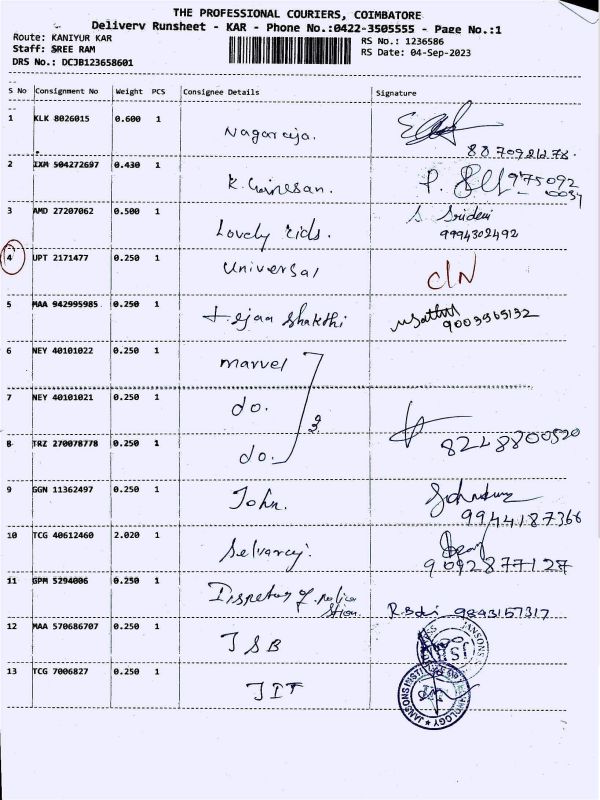 THE PROFESSIONAL COURIERS, COIMBATORE
Delivery Runsheet - KAR - Phone No.:0422-3505555 - Page No.:1
Route: KANIYUR KAR
RS No.: 1236586
Staff: SREE RAM
RS Date: 04-Sep-2023
DRS No.: DCJB123658601
S No Consignment No Weight PCS Consignee Details Signature
1 KLK 8026015 0.600 1 Nagaraja.
2 IXM 504272697 0.430 1 K. Ganesan. P.
3 AMD 27207062 0.500 1 Lovely kids. S. Sridevi
9994302492
4 UPT 2171477 0.250 1 Universal C/N
5 MAA 942995985 0.250 1 Shakthi
9003565132
6 NEY 40101022 0.250 1 marvel
7 NEY 40101021 0.250 1 do.
3
8 TRZ 270078778 0.250 1 do. 8248800520
9 GGN 11362497 0.250 1 John.
9944187366
10 TCG 40612460 2.020 1 Selvaraj.
9092877127
11 GPM 5294006 0.250 1 Inspector of police
Station. 9843157317
12 MAA 570686707 0.250 1 JSB
JANSONS
13 TCG 7006827 0.250 1 JIT
JANSONS INSTITUTE OF TECHNOLOGY